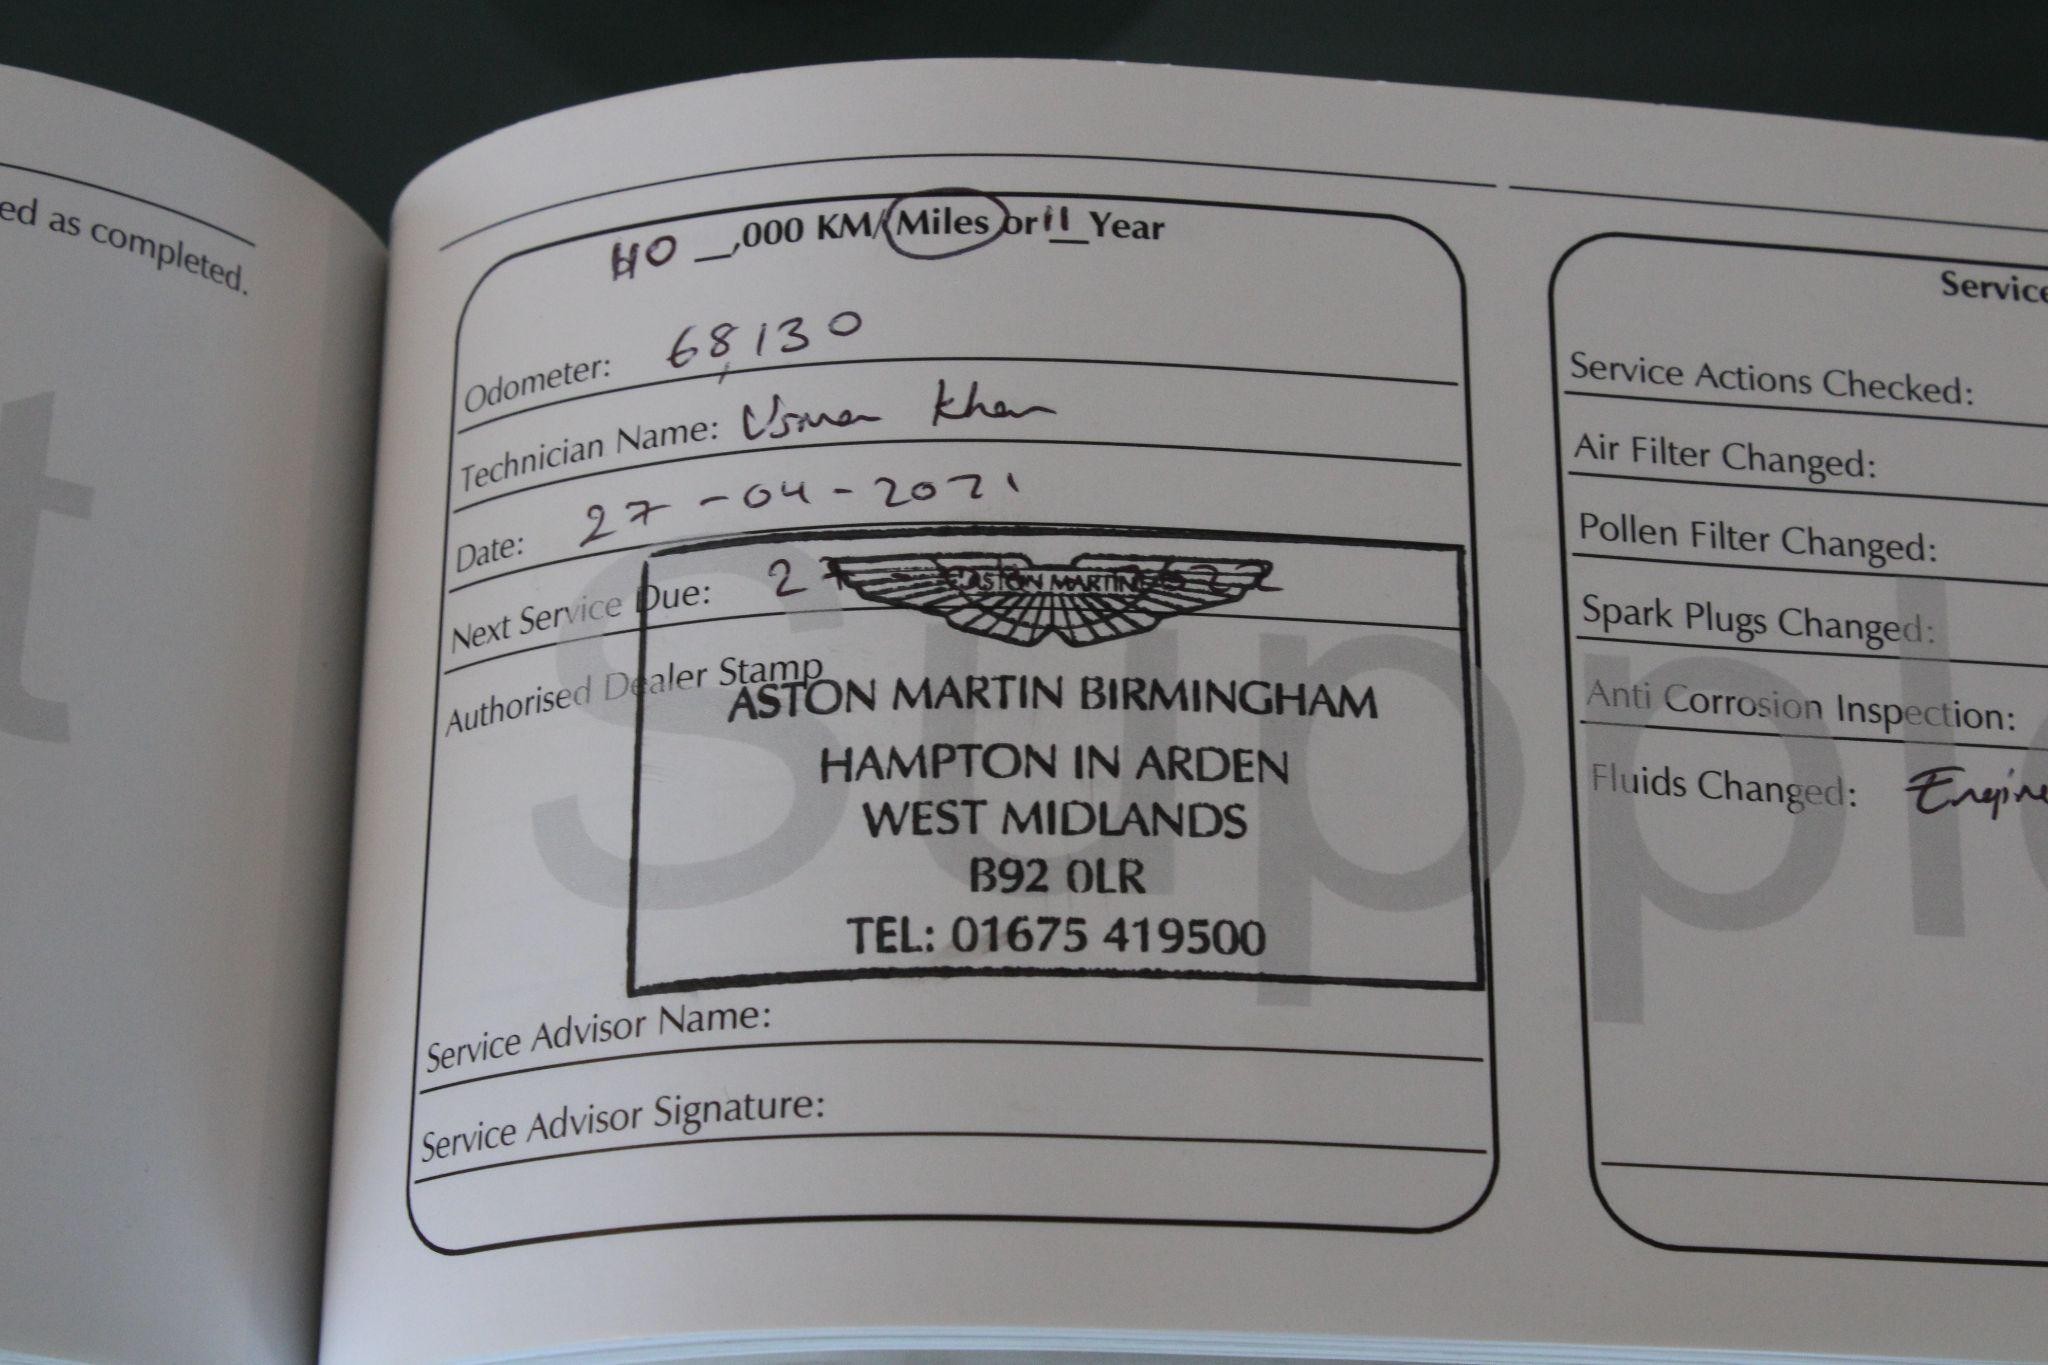 ed as completed.
t
110 _,000 KM/Miles or 11 Year
Odometer: 68,130
Technician Name: Usman Khan
Date: 27-04-2021
Next Service Due: 27 2022
ASTON MARTIN
Authorised Dealer Stamp
ASTON MARTIN BIRMINGHAM
HAMPTON IN ARDEN
WEST MIDLANDS
B92 0LR
TEL: 01675 419500
Service Advisor Name:
Service Advisor Signature:
Supple
Service
Service Actions Checked:
Air Filter Changed:
Pollen Filter Changed:
Spark Plugs Changed:
Anti Corrosion Inspection:
Fluids Changed: Engine